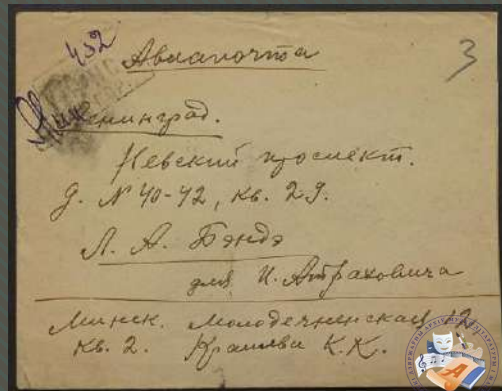 432
Авиапочта
3
Ленинград.
Невский проспект.
д. N 40-42, кв. 29.
Л. А. Бэндэ
для И. Абраховича
Минск. Молодечненская, 12,
кв. 2. Крапива К. К.